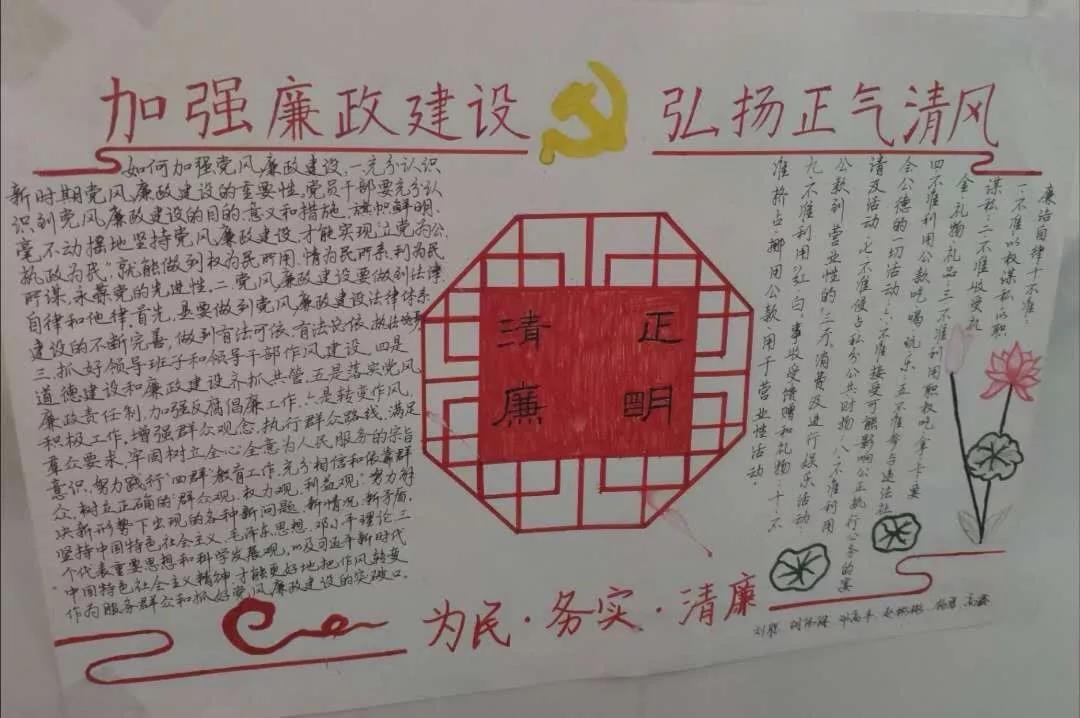 加强廉政建设
弘扬正气清风
如何加强党风廉政建设，一充分认识
新时期党风廉政建设的重要性。党员干部要充分认
识到党风廉政建设的目的、意义和措施，旗帜鲜明、
毫不动摇地坚持党风廉政建设，才能实现“立党为公、
执政为民”，就能做到权为民所用，情为民所系，利为民
所谋，永葆党的先进性。二党风廉政建设要做到法律、
自律和他律，首先，是要做到党风廉政建设法律体系
建设的不断完善，做到有法可依，有法必依，
三、抓好领导班子和领导干部作风建设。四是
道德建设和廉政建设齐抓共管。五是落实党风
廉政责任制，加强反腐倡廉工作。六是转变作风，
积极工作，增强群众观念，执行群众路线，满足
群众要求，牢固树立全心全意为人民服务的宗旨
意识，努力践行“四群”教育工作，充分相信和依靠群
众，树立正确的“群众观，权力观，利益观”，努力解
决新形势下出现的各种新问题，新情况，新矛盾，
坚持中国特色社会主义、毛泽东思想、邓小平理论、三
个代表重要思想和科学发展观，以及习近平新时代
“中国特色社会主义”精神，才能更好地把作风转变
作为服务群众和抓好党风廉政建设的突破口。
清 正
廉 明
廉洁自律十不准：
一不准以权谋私以职
谋私；二不准收受礼
金、礼物、礼品；三不准利用职权吃、拿、卡、要
四不准利用公款吃喝玩乐；五不准参与违法社
会公德的一切活动；六不准接受可能影响公正执行公务的宴
请及活动；七不准侵占私分公共财物；八不准利用
公款到营业性的“三厅”消费及进行娱乐活动；
九不准利用“红、白”事收受馈赠和礼物；十不
准挤占、挪用公款用于营业性活动。
为民·务实·清廉